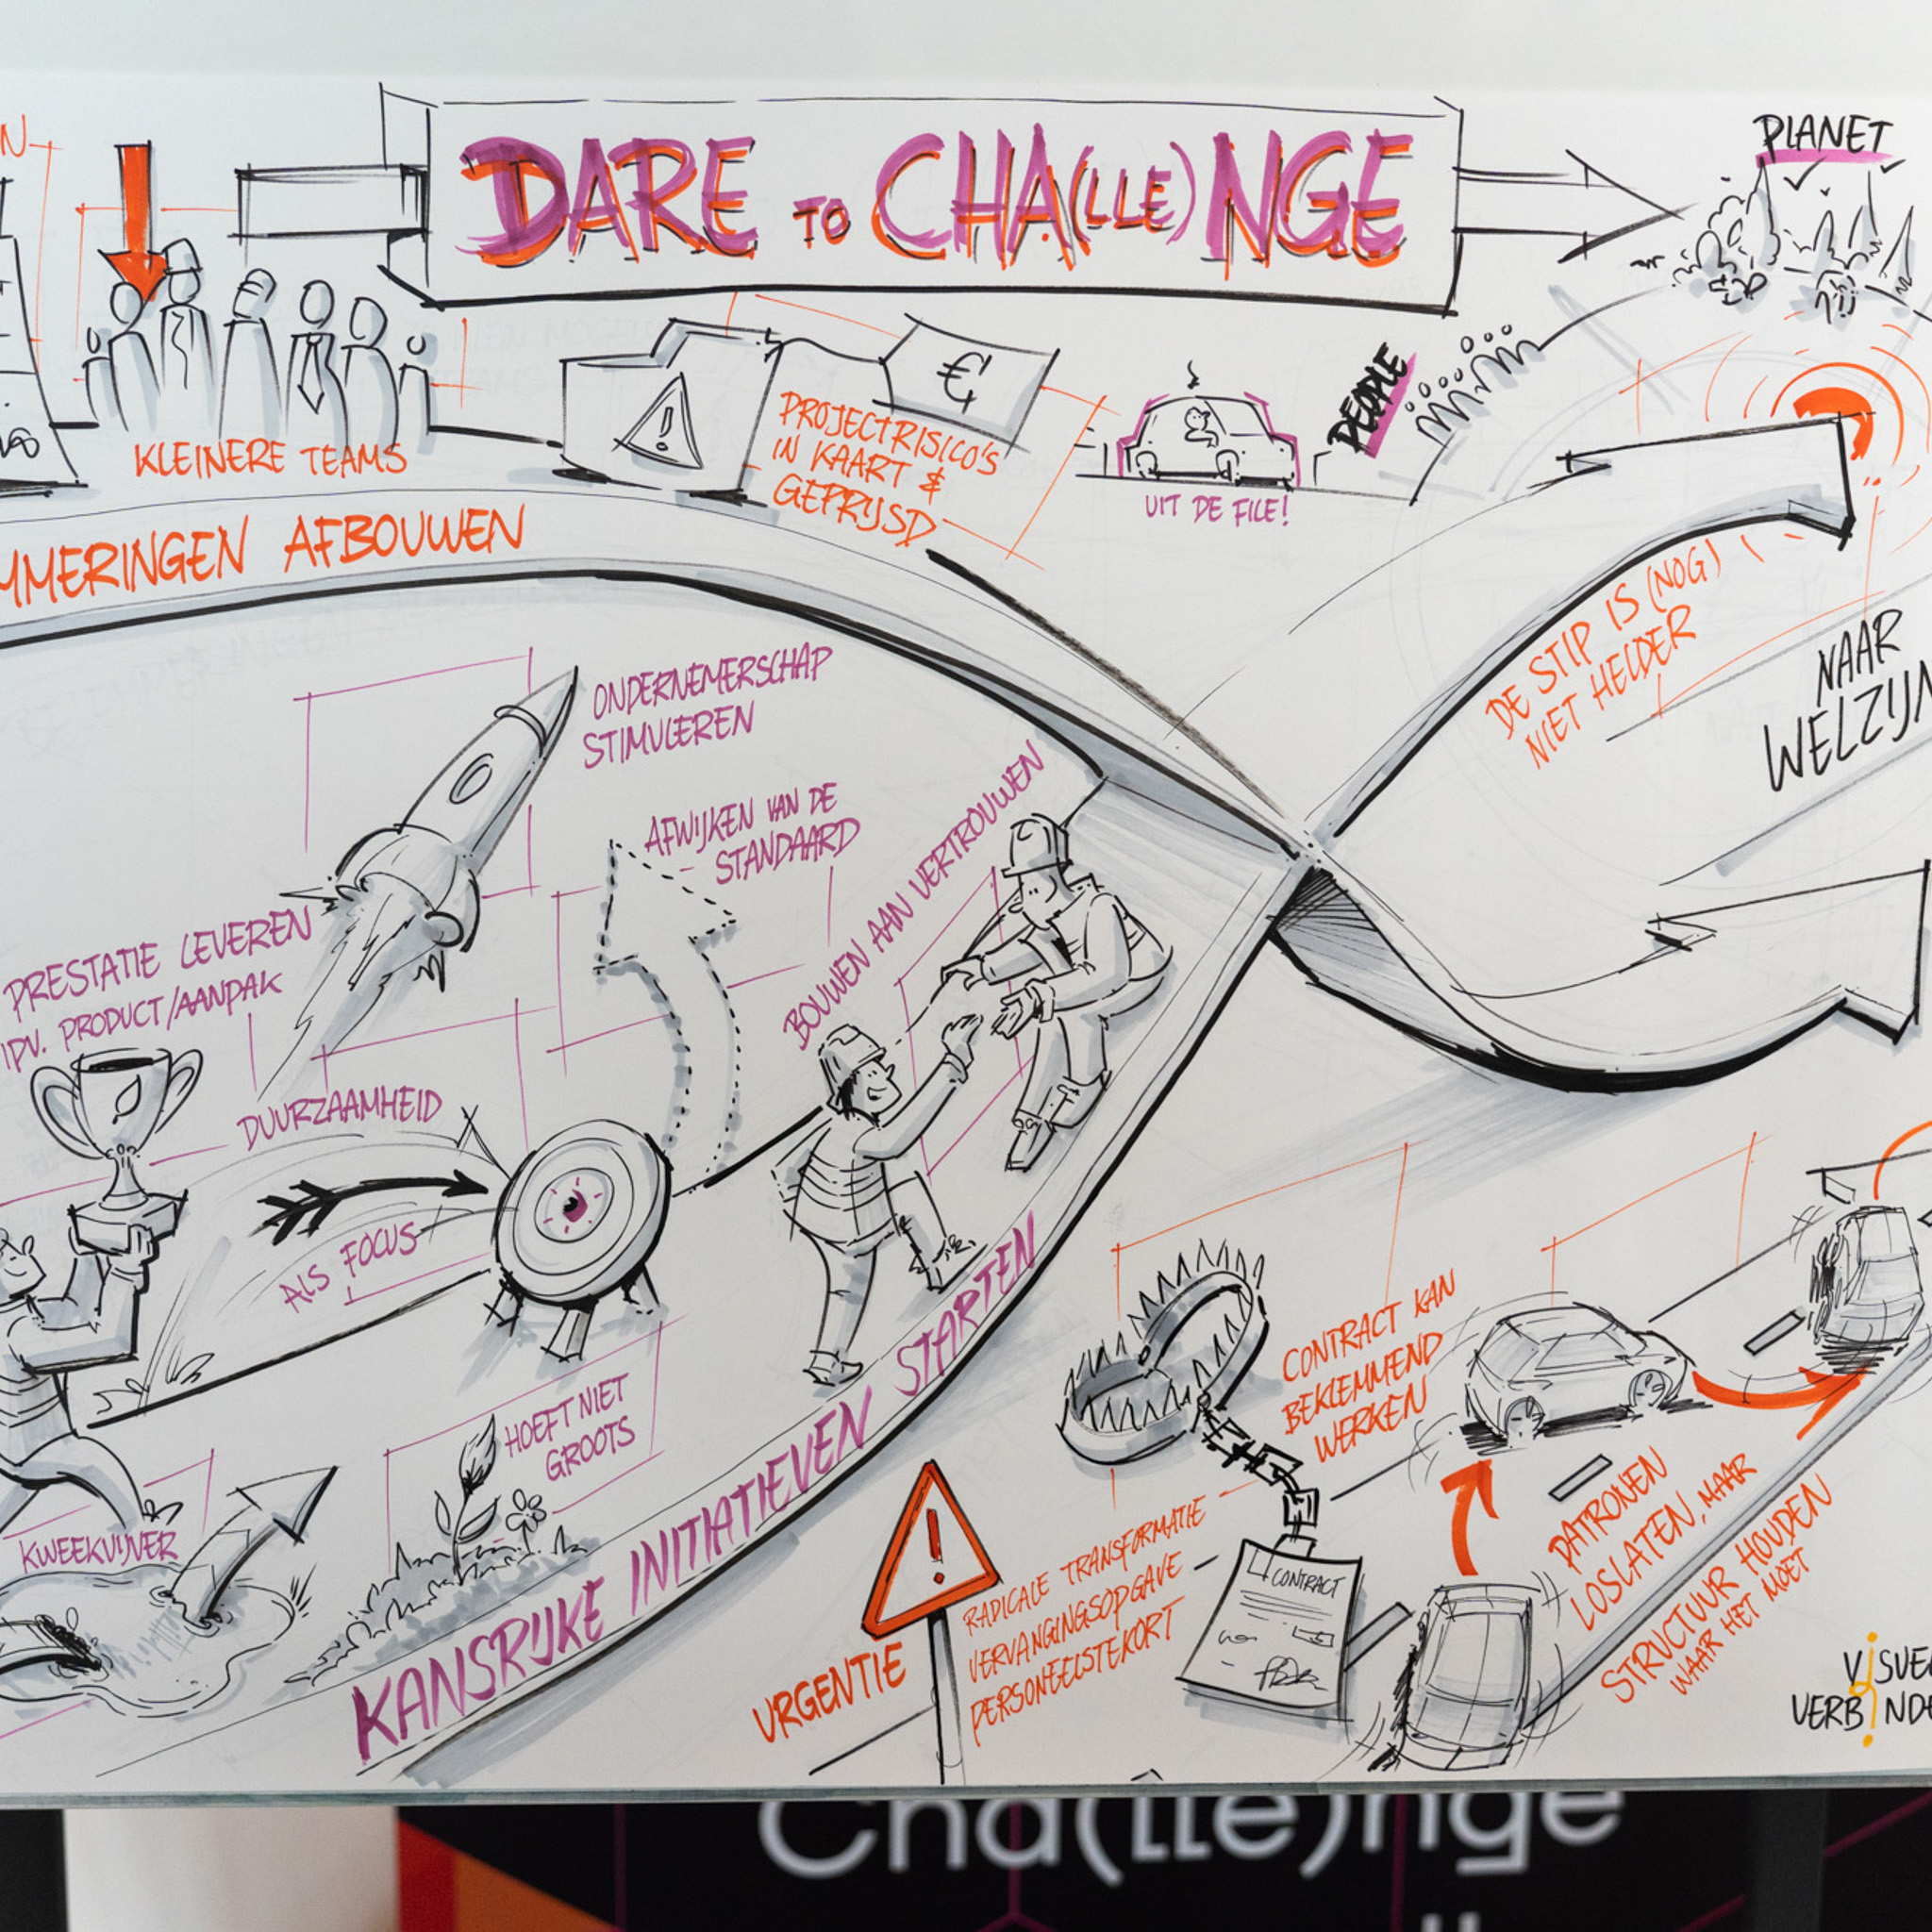 DARE TO CHA(LLE)NGE
PLANET
KLEINERE TEAMS
€
PROJECTRISICO'S
IN KAART &
GEPRIJSD
UIT DE FILE!
PEOPLE
MMERINGEN AFBOUWEN
DE STIP IS (NOG)
NIET HELDER
NAAR
WELZIJN
ONDERNEMERSCHAP
STIMULEREN
AFWIJKEN VAN DE
STANDAARD
BOUWEN AAN VERTROUWEN
PRESTATIE LEVEREN
IPV. PRODUCT/AANPAK
DUURZAAMHEID
ALS FOCUS
HOEFT NIET
GROOTS
KWEEKVIJVER
KANSRIJKE INITIATIEVEN STARTEN
CONTRACT KAN
BEKLEMMEND
WERKEN
CONTRACT
!
URGENTIE
RADICALE TRANSFORMATIE
VERVANGINGSOPGAVE
PERSONEELSTEKORT
PATRONEN
LOSLATEN, MAAR
STRUCTUUR HOUDEN
WAAR HET MOET
VISUE
VERBINDE
Cha(lle)nge